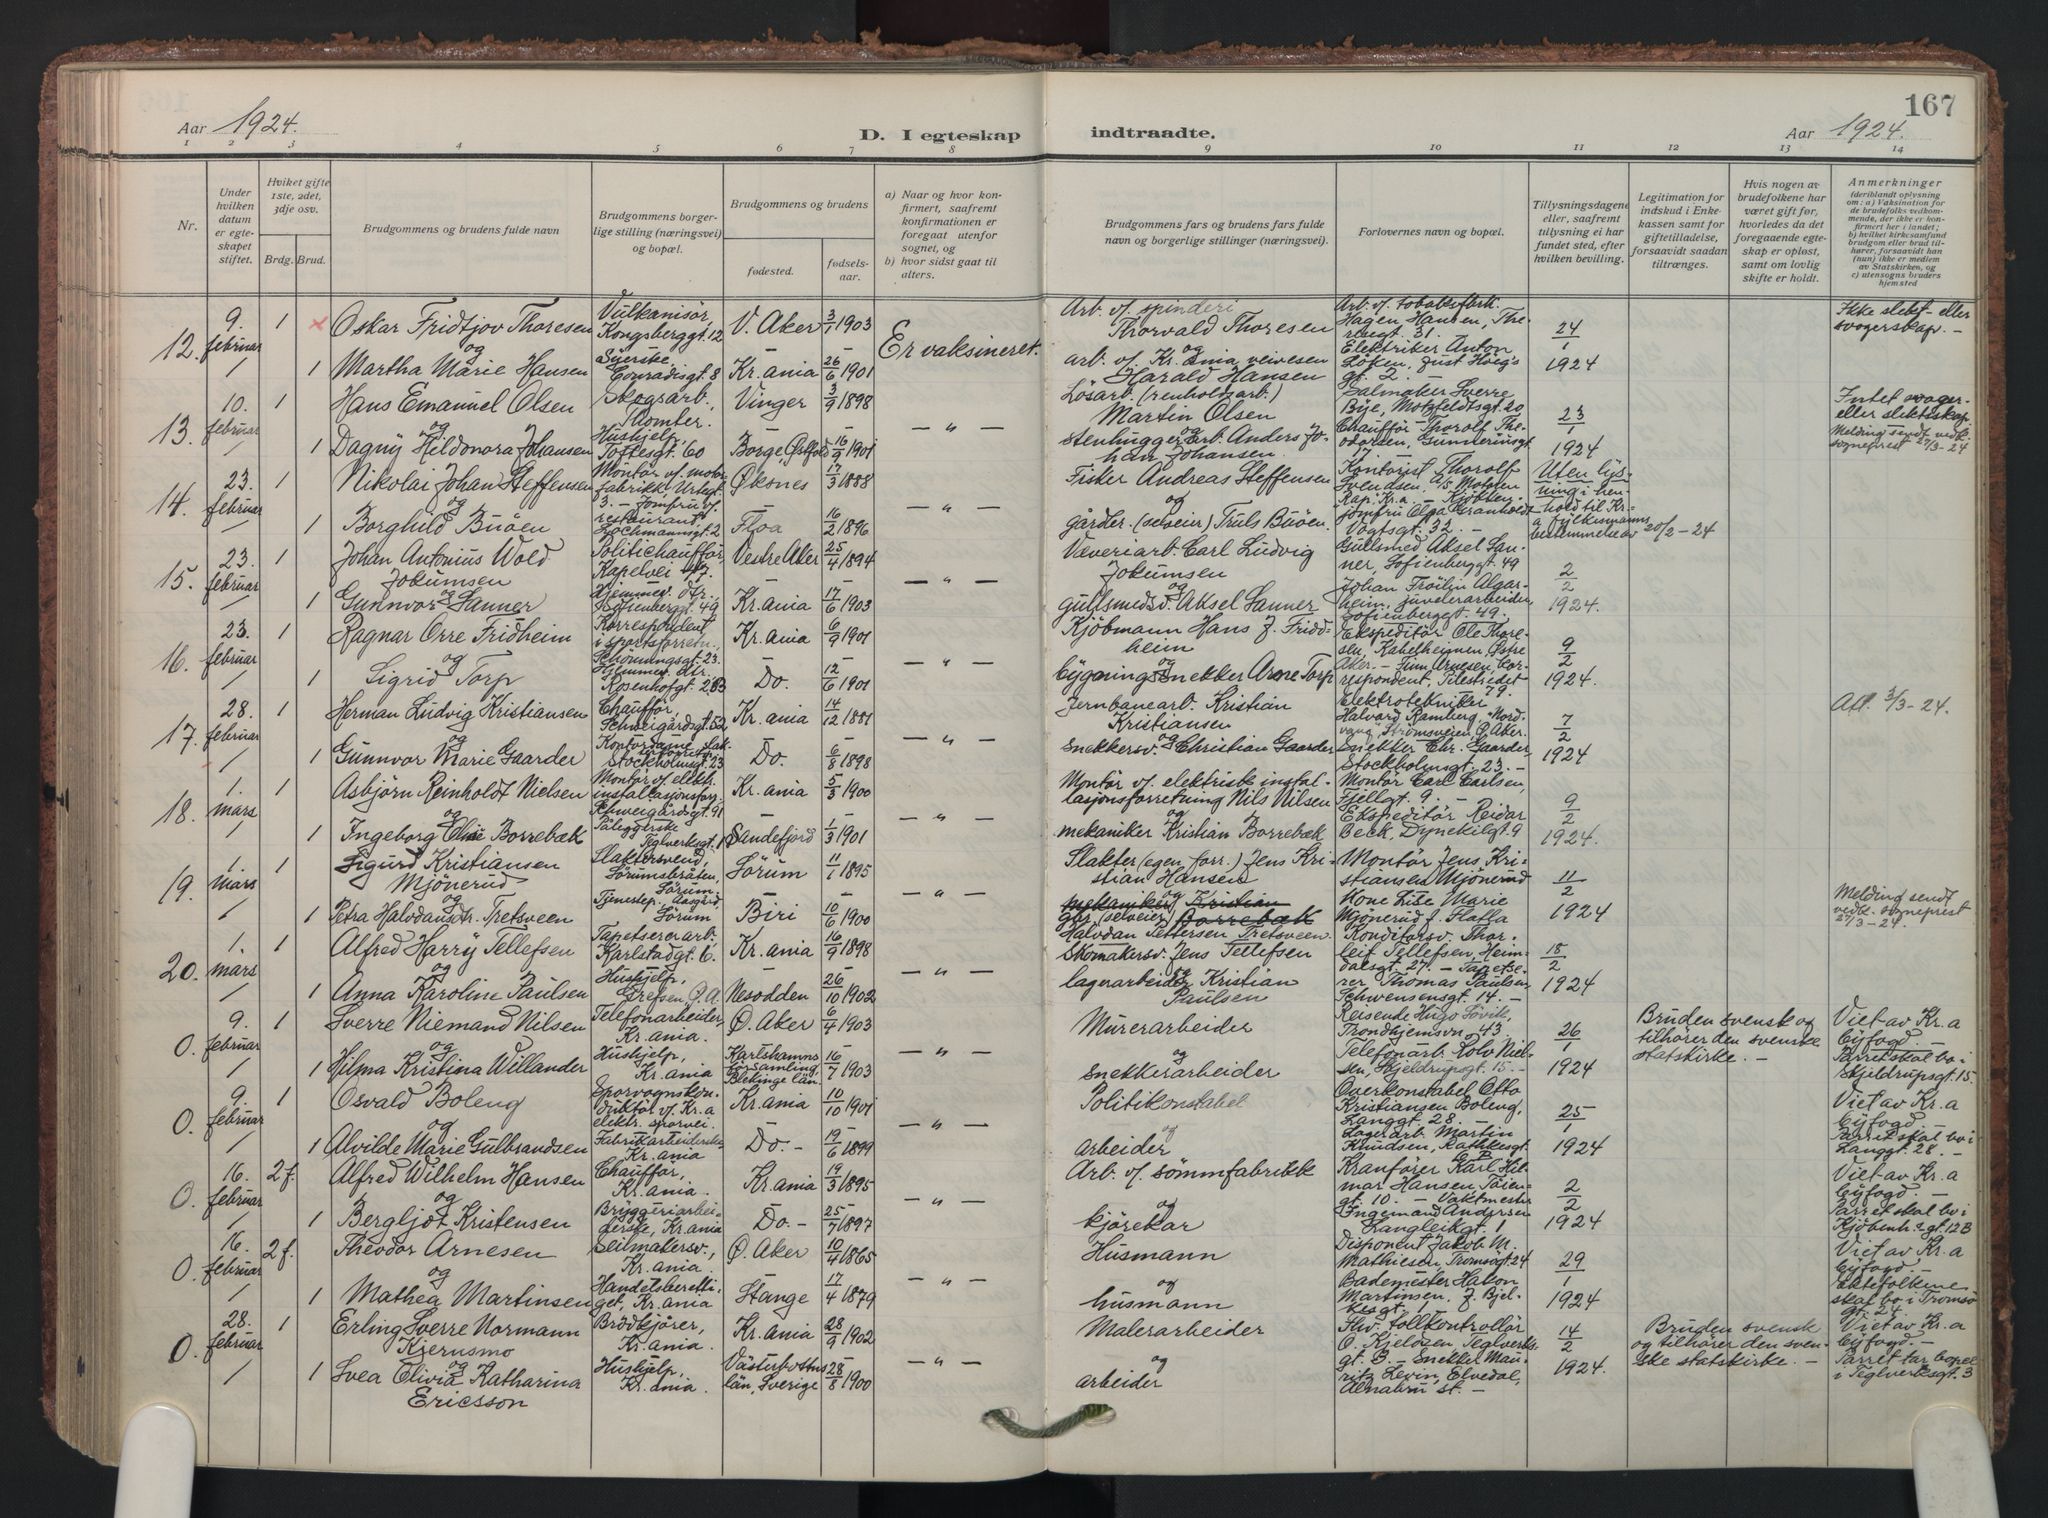 167
Aar 1924.
D. I egteskap indtraadte.
Aar 1924.
1 2 3 4 5 6 7 8 9 10 11 12 13 14
Nr.
Under hvilken datum er egteskapet stiftet.
Hvilket gifte 1ste, 2det, 3dje osv.
Brdg. Brud.
Brudgommens og brudens fulde navn
Brudgommens borgerlige stilling (næringsvei) og bopæl.
Brudgommens og brudens
fødested.
fødselsaar.
a) Naar og hvor konfirmert, saafremt konfirmationen er foregaat utenfor sognet, og
b) hvor sidst gaat til alters.
Brudgommens fars og brudens fars fulde navn og borgerlige stillinger (næringsvei).
Forlovernes navn og bopæl.
Tillysningsdagene eller, saafremt tillysning ei har fundet sted, efter hvilken bevilling.
Legitimation for indskud i Enkekassen samt for giftetilladelse, forsaavidt saadan tiltrænges.
Hvis nogen av brudefolkene har været gift før, hvorledes da det foregaaende egteskap er opløst, samt om lovlig skifte er holdt.
Anmerkninger
(deriblandt oplysning om: a) Vaksination for de brudefolks vedkommende, der ikke er konfirmert her i landet; b) hvilket kirkesamfund brudgom eller brud tilhører, forsaavidt han (hun) ikke er medlem av Statskirken, og c) utensogns bruders hjemsted
12. 9. februar 1 Oskar Fridtjov Thoresen Vulkanisör, Kongsberggt. 12 V. Aker 3/1 1903 Er vaksineret. Arb. v. spinderi Thorvald Thoresen Arb. v. tobakksfbrk. Hagen Hansen, Theresegt 31. 24/1 1924 Ikke slekt- eller svogerskap. –
og
1 Martha Marie Hansen Syerske, Conradisgt. 8 Kr.ania 26/6 1901 arb. v. Kr.ania veivesen Harald Hansen Elektriker Anton Löken, Just Höegs gt. 2.
13. 10. februar 1 Hans Emanuel Olsen Skogsarb., Tomter Vinger 3/9 1898 – " – Lösarb. (renholdsarb.) Martin Olsen Salmaker Sverre Bye, Motzfeldtsgt. 20 23/1 1924 Intet svoger- eller slektskap. Melding sendt vedk. sogneprest 27/3-24
og
1 Dagny Hildonora Johansen Hushjelp, Toftesgt. 60 Borge, Østfold 16/9 1901 stenhuggerarb. Anders Johan Johansen. Chaufför Thorolf Theodorsen, Gunneriusgt. 17
14. 23. februar 1 Nikolai Johan Steffensen Montör v. motorfabrikk, Urtegt. 3. Øksnes 17/3 1888 – " – Fisker Andreas Steffensen Kontorist Thorolf Svendsen, A/S Motoren Rap, Kr.a. Uten lysning i henhold til Kr.a fylkesmanns bestemmelse av 20/2-24
og
1 Borghild Buöen Jomfru v. restaurant, Lochmannsgt. 2 Floa 16/2 1896 gårdbr. (selveier) Truls Buöen. – Kjökkenjomfru Olga Granholdt Vogtsgt. 32. –
15. 23. februar 1 Johan Antonius Wold Jokumsen Politichauffør, Kapelvei 17. Vestre Aker 25/4 1894 – " – Væveriarb. Carl Ludvig Jokumsen Gullsmed Aksel Sanner, Sofienberggt. 49 2/2 1924.
og
1 Gunnvor Sanner Hjemmev. dtr. Sofienberggt. 49 Kr.ania 17/6 1903 gullsmedsv. Aksel Sanner Johan Fröilin Algarheim, juvelerarbeider, Sofienberggt. 49.
16. 23. februar 1 Ragnar Orre Fridheim Korrespondent i sportsforretn., Schöningsgt. 23. Kr.ania 6/9 1901 – " – Kjöbmann Hans J. Fridheim Ekspeditör Ole Thoresen, Kabelheimen, Østre Aker. 9/2 1924.
og
1 Sigrid Torp Hjemmev. dtr. Rosenhofgt. 2 B Do. 12/6 1901 bygningssnekker Arne Torp – Finn Arnesen, korrespondent, Pilestredet 79.
17. 28. februar 1 Herman Ludvig Kristiansen Chauffør, Schweigårdsgt. 52 Kr.ania 14/12 1881 – " – Jernbanearb. Kristian Kristiansen Elektrotekniker Halvard Ramberg, Nordvang, Strömsveien, Ø. Aker. 7/2 1924 Att. 3/3-24.
og
1 Gunnvor Marie Gaarder Kontordame, Stockholmsgt. 23 Do. 6/8 1898 snekkersv. Christian Gaarder Snekker Chr. Gaarder, Stockholmsgt. 23. –
18. 1. mars 1 Asbjörn Reinholdt Nielsen Montör v. elektr. installasjonsforr., Schweigårdsgt. 91 Kr.ania 5/3 1900 – " – Montör v. elektrisk installasjonsforretning Nils Nilsen Montör Carl Carlsen, Fjellgt. 9. – 9/2 1924.
og
1 Ingeborg Elise Borrebæk Påleggerske Teglverksgt. 1 Sandefjord 1/3 1901 mekaniker Kristian Borrebæk Ekspeditör Reidar Beck, Dynekilgt. 9
19. 1. mars 1 Sigurd Kristiansen Mjönerud Slaktersvend, Sörumsbråten, Sörum. Sörum 11/1 1895 – " – Slakter (egen forr.) Jens Kristian Hansen Montör Jens Kristiansen Mjönerud 11/2 1924 Melding sendt vedk. sogneprest 27/3-24.
og
1 Petra Halvdansdtr. Tretsveen Tjenestepi. Aasgård, Sörum Biri 10/6 1900 mekaniker Kristian Borrebæk gbr. (selveier) Halvdan Pettersen Tretsveen. Kone Lise Marie Mjönerud f. Slatla
20. 1. mars 1 Alfred Harry Tellefsen Tapetsererarb. Karlstadgt. 6. Kr.ania 16/9 1898 – " – Skomakersv. Jens Tellefsen Konditorsv. Thorleif Tellefsen, Heimdalsgt. 27. 18/2 1924
og
1 Anna Karoline Paulsen Hushjelp, Grefsen, Ø.A. Nesodden 26/10 1902 lagerarbeider Kristian Paulsen – Tapetserer Thomas Paulsen, Schwensensgt. 14. –
0. 9. februar 1 Sverre Niemand Nilsen Telefonarbeider, Kr.ania. Ø. Aker 6/4 1903 – " – Murerarbeider Reisende Hugo Sövik, Trondhjemsvn. 43. 26/1 1924 Bruden svensk og tilhører den svenske statskirke. – Viet av Kr.a byfogd. – Parret skal bo i Skjeldrupsgt. 15.
og
1 Hilma Kristina Willander Hushjelp, Kr.ania Karlshamns församling, Blekinge län. 16/7 1903 snekkerarbeider Telefonarb. Rolv Nielsen, Skjeldrupsgt. 15. –
0. 9. februar 1 Osvald Boleng Sporvognskonduktör v. Kr.a elektr. sporvei. Kr.ania 10/10 1901 – " – Politikonstabel Overkonstabel Otto Kristiansen Boleng, Langgt. 28. – 25/1 1924 Viet av Kr.a byfogd. – Parret skal bo i Langgt. 28. –
og
1 Alvilde Marie Gulbrandsen Fabrikarbeiderske Kr.ania Do. – 19/6 1899 arbeider Lagerarb. Martin Knudsen, Rathkesgt.
0. 16. februar 2 f. Alfred Wilhelm Hansen Chauffør, Kr.ania. Kr.ania 19/3 1895 – " – Arb. v. sömmfabrikk Kranförer Karl Hilmar Hansen, Töiengt. 10. 2/2 1924 Viet av Kr.a byfogd. – Parret skal bo i Kjöbenh.sgt. 12B
og
1 Bergljot Kristensen Bryggeriarbeiderske, Kr.ania Do. – 25/7 1897 kjörekar – Vaktmester Ingemand Andersen Langleikgt. 1
0. 16. februar 2 f. Theodor Arnesen Seilmakersv., Kr.ania. Ø. Aker 10/4 1865 – " – Husmann Disponent Jakob M. Mathiesen, Tromsögt. 24 29/1 1924 Viet av Kr.a byfogd. – Ektefolkene skal bo i Tromsö gt. 24.
og
1 Mathea Martinsen Handelsberettiget, Kr.ania Stange 17/4 1879 husmann Bademester Håkon Martinsen, J. Bjelkesgt. 1
0. 28. februar 1 Erling Sverre Normann Kjernsmo Brödkjörer, Kr.ania. Kr.ania 28/9 1902 – " – Malerarbeider Fhv. tollkontrollör O. Kjeldsen, Teglverksgt. 3 14/2 1924. Bruden svensk og tilhører den svenske statskirke. – Viet av Kr.a byfogd – Parret tar bopel i Teglverksgt. 3
og
1 Svea Olivia Katharina Ericsson Hushjelp, Kr.ania. Västerbottns län, Sverige 28/8 1900 arbeider – Snekker Mauritz Levin, Elvedal, Alnabru st. –